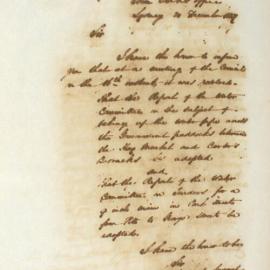 Town Clerk's Office
Sydney 20 December 1859
Sir
I have the honor to inform
you that at a meeting of the Council
on the 18th instant it was resolved
That the Report of the Water
Committee on the subject of
taking up the water pipes across
the Government paddocks between
the Hay Market and Carter's
Barracks be adopted
and
that the Report of the Water
Committee on Tenders for a
6 inch main in Pitt Street
from to be
adopted.
I have the honor to be
Sir